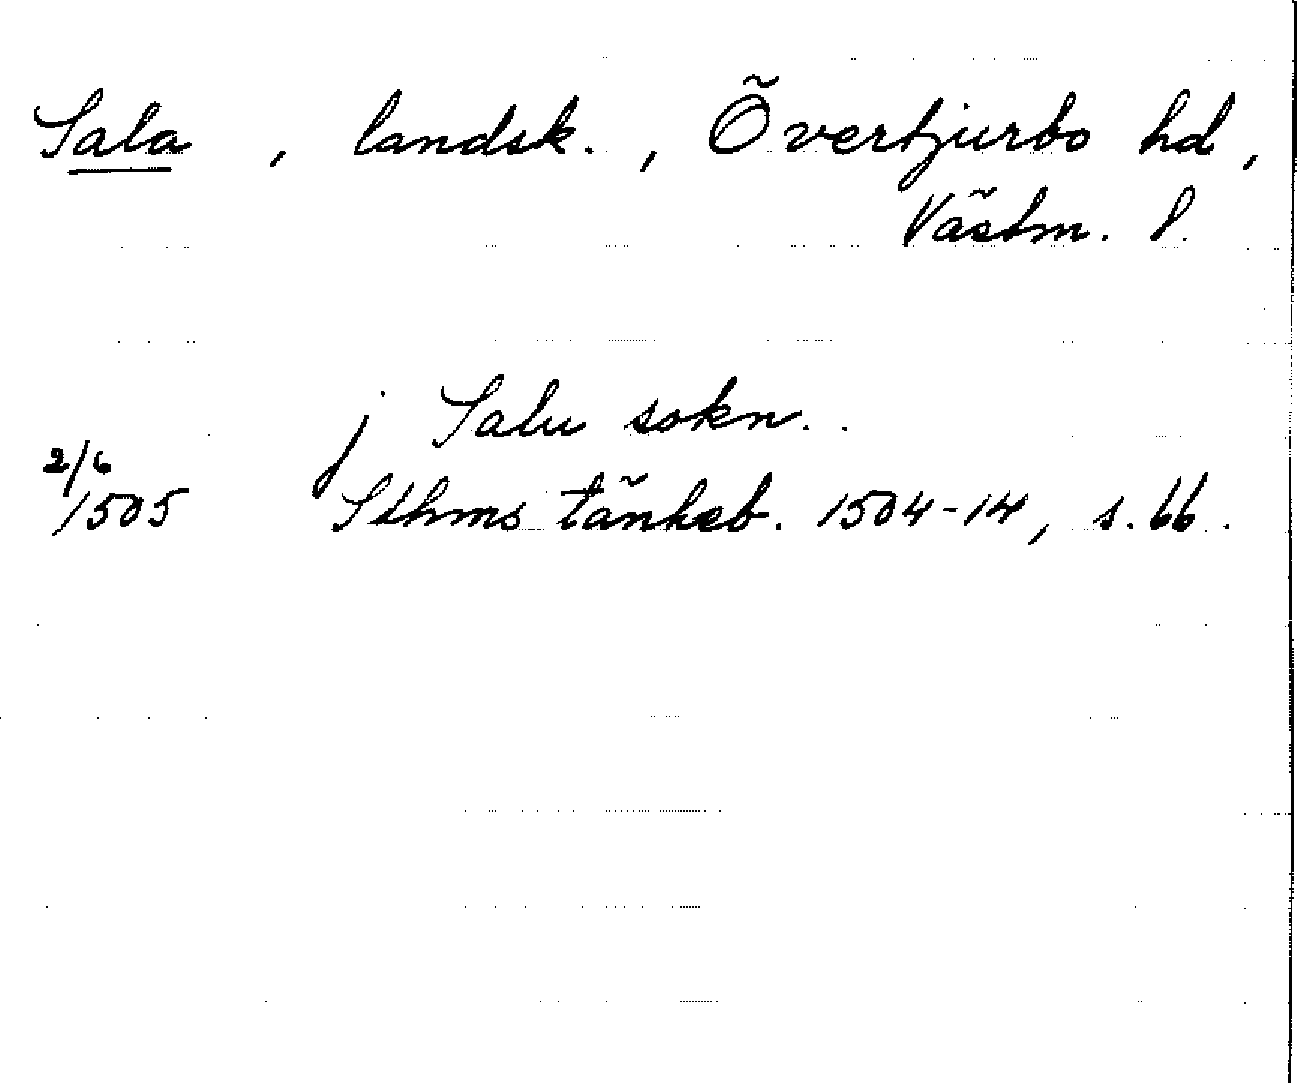 Sala, landsk., Övertjurbo hd,
Västm. l.
j Salu sokn..
2/6
1505 Sthms tänkeb. 1504-14, s. 66.